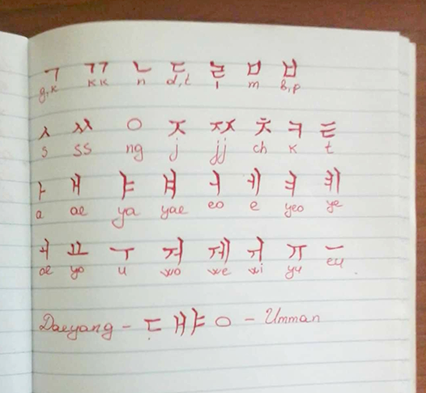 ㄱ ㄲ ㄴ ㄷ ㅁ ㅂ
g,k kk n d,t l m b,p
ㅅ ㅆ ㅇ ㅈ ㅉ ㅊ ㅋ ㅌ
s ss ng j jj ch k t
ㅏ ㅐ ㅑ ㅒ ㅓ ㅔ ㅕ ㅖ
a ae ya yae eo e yeo ye
ㅛ ㅜ ㅝ ㅞ ㅟ ㅠ ㅡ
oe yo u wo we wi yu eu
Daeyang - ㄷㅐㅑㅇ - Umman